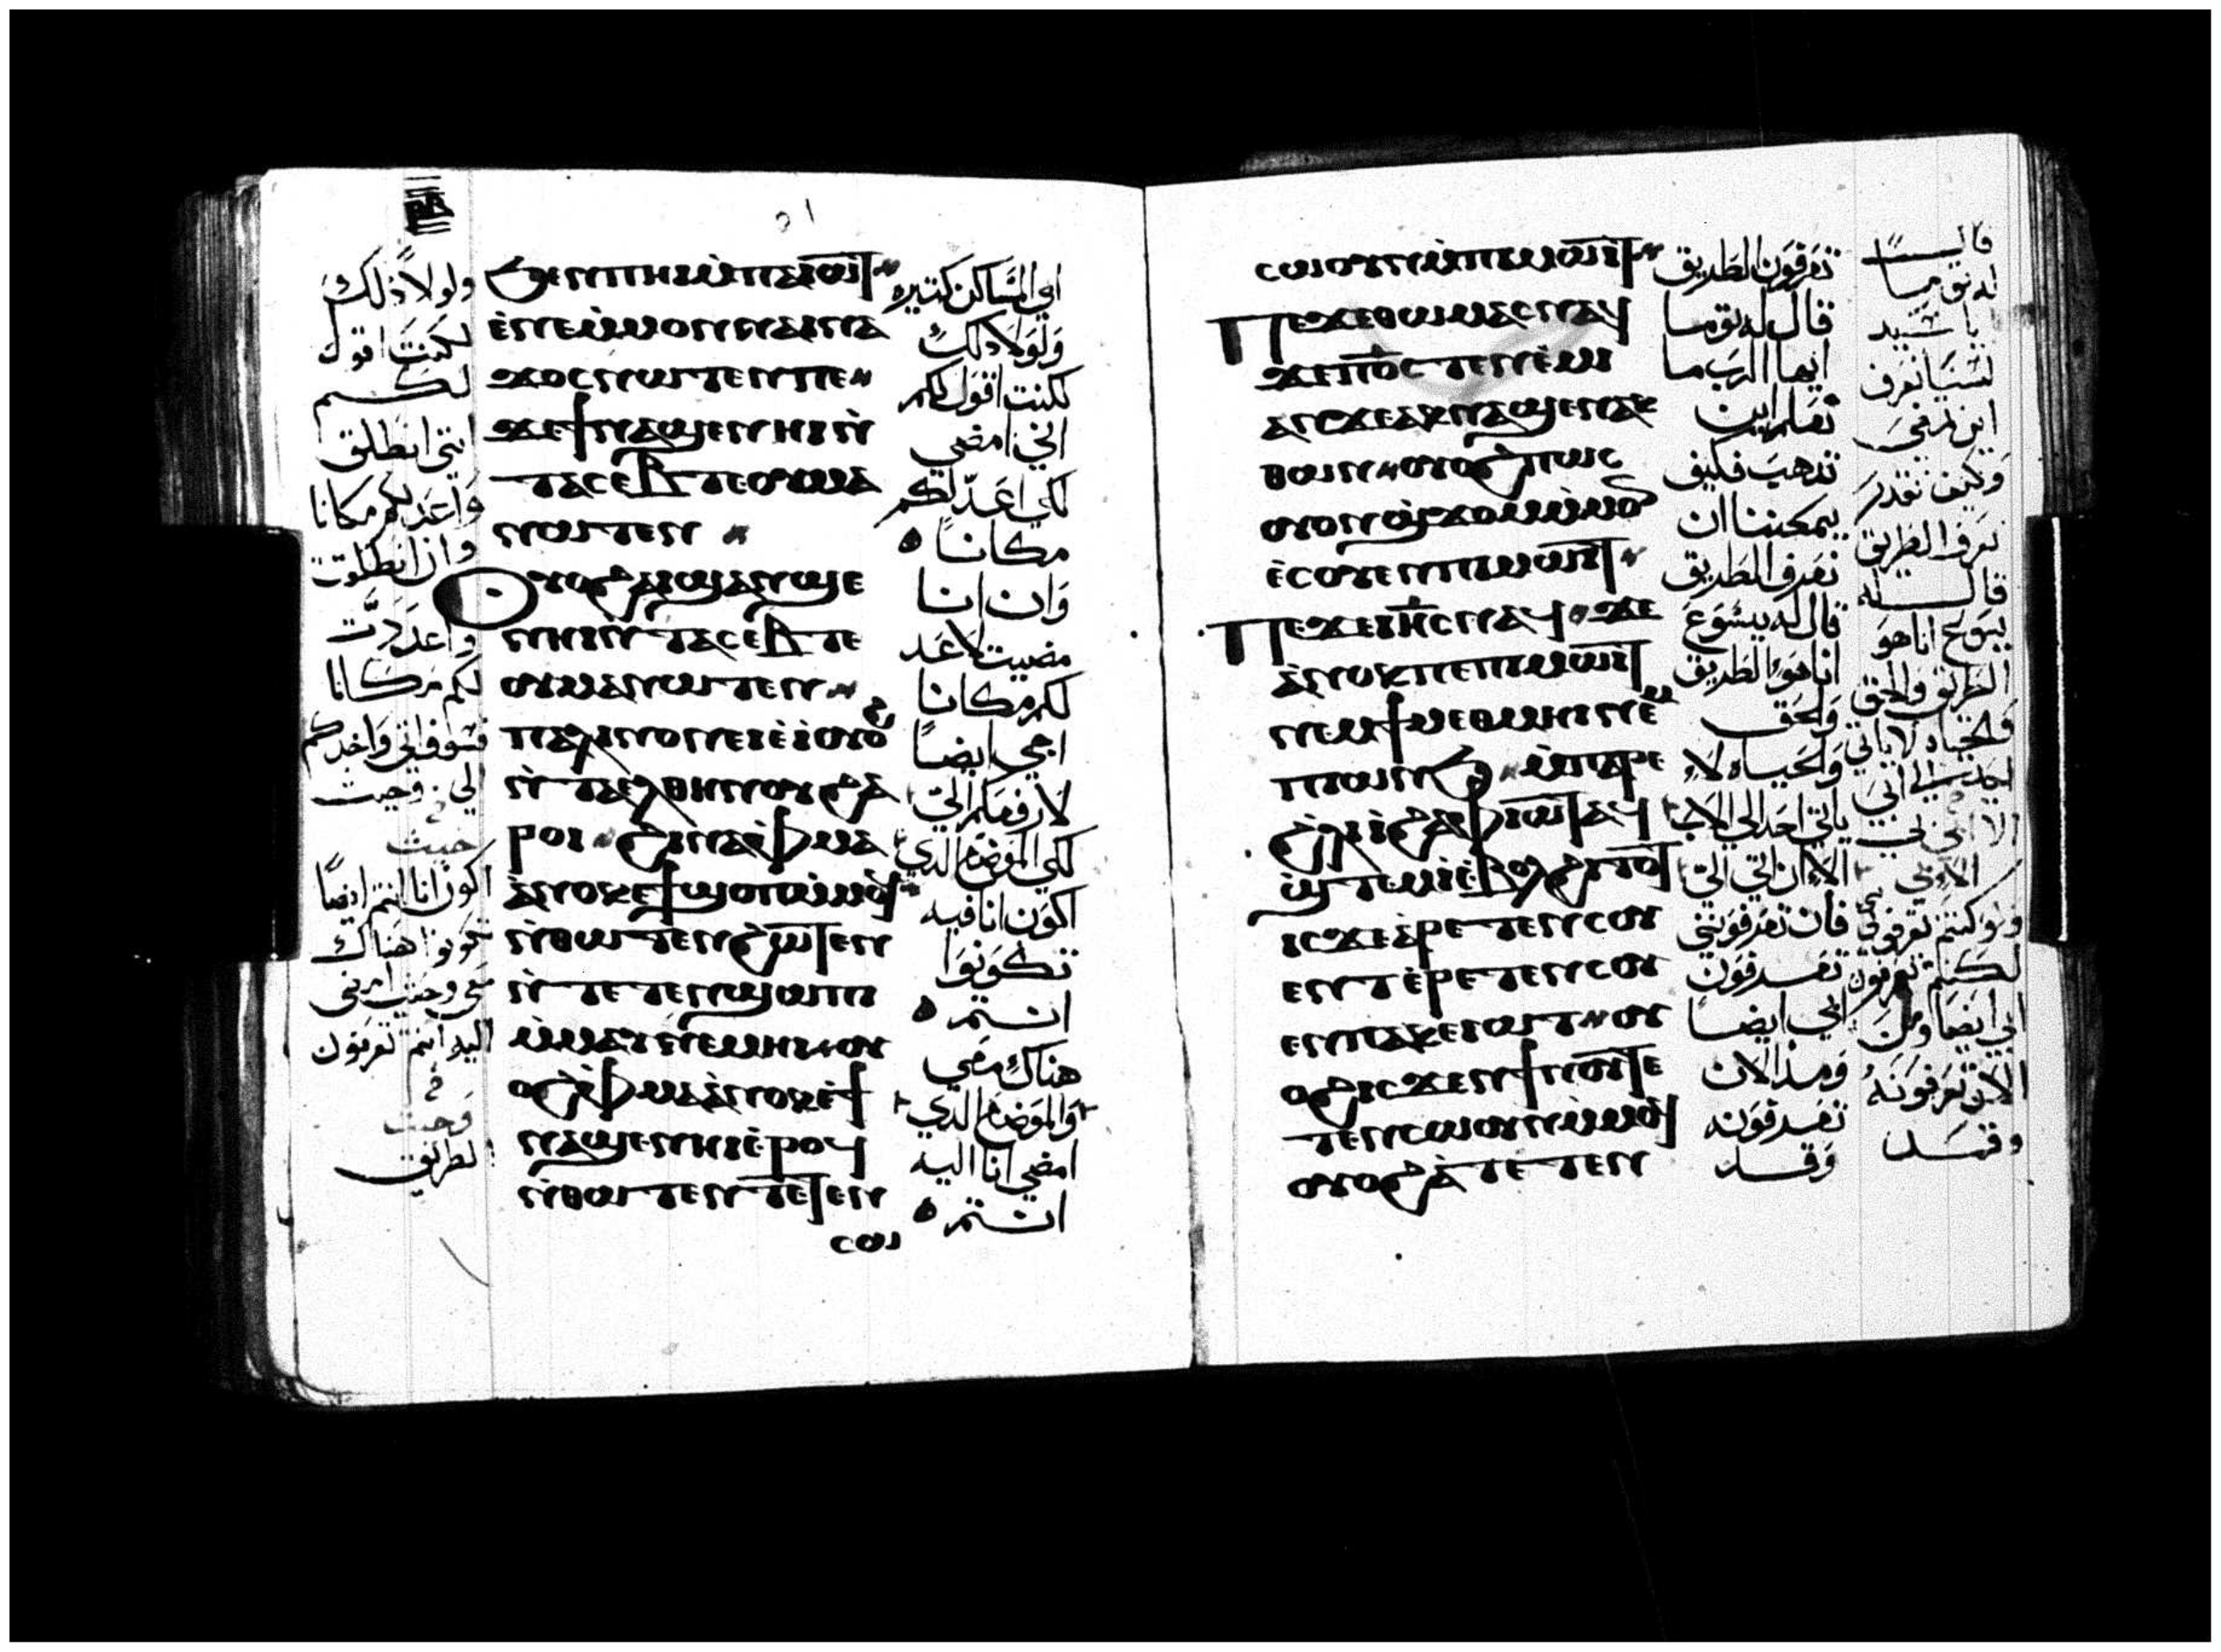 ⲣⲇ
ϧⲉⲛⲡⲏⲓⲙ̀ⲡⲁⲓⲱⲧ
ⲉ̀ⲛⲉⲙ̀ⲙⲟⲛⲛⲁⲓⲛⲁ
ϫⲟⲥⲛⲱⲧⲉⲛⲡⲉ
ϫⲉϯⲛⲁϣⲉⲛⲏⲓⲛ̀
ⲧⲁⲥⲉⲃⲧⲉⲟⲩⲙⲁ
ⲛⲱⲧⲉⲛ
ⲟⲩⲟϩⲁⲓϣⲁⲛϣⲉ
ⲛⲏⲓⲛ̀ⲧⲁⲥⲉⲃⲧⲉ
ⲟⲩⲙⲁⲛⲱⲧⲉⲛ
ⲡⲁⲗⲓⲛⲟⲛⲉⲓⲉ̀ⲓⲟⲩⲟϩ
ⲛ̀ⲧⲁⲉⲗⲑⲏⲛⲟⲩϩⲁ
ⲣⲟⲓ ϩⲓⲛⲁⲫⲙⲁ
ⲁ̀ⲛⲟⲕⲉϯϣⲟⲡⲙ̀ⲙⲟϥ
ⲛ̀ⲑⲱⲧⲉⲛϩⲱⲧⲉⲛ
ⲛ̀ⲧⲉⲧⲉⲛϣⲱⲡⲓ
ⲙ̀ⲙⲁⲩⲛⲉⲙⲏⲓ ⲟⲩ
ⲟϩⲫⲙⲁⲁ̀ⲛⲟⲕⲉ̀ϯ
ⲛⲁϣⲉⲛⲏⲓⲉ̀ⲣⲟϥ
ⲛ̀ⲑⲱⲧⲉⲛⲧⲉⲧⲉⲛ
ⲥⲱ
ابي المساكن كتيره
ولولا ذلك
لكنت اقول لكم
اني امضي
لكي اعد لكم
مكاناً
وان انا
مضيت لاعد
لكم مكانا
اجي ايضاً
لارفعكم اليّ
لكي الموضع الدي
اكون انا فيه
تكونوا
انتم
هناك معي
والموضع الدي
امضي انا اليه
انتم
ولولا ذلك
لكنت اقول
لكم
انني انطلق
واعد لكم مكانا
وان انطلقت
واعددت
لكم مكانا
فسوف اتي واخدكم
الي وحيث
حيث
اكون انا انتم ايضاً
تكونوا هناك
اليه انتم تعرفون
وحيث
الطريق
ⲥⲱⲟⲩⲛⲙ̀ⲡⲓⲙⲱⲓⲧ
ⲡⲉϫⲉⲑⲱⲙⲁⲥⲛⲁϥ
ϫⲉⲡⲟ̅ⲥ̅ⲧⲉⲛⲉ̀ⲙⲓ
ⲁⲛϫⲉⲁⲕⲛⲁϣⲉⲛⲁⲕ
ⲑⲱⲛ ⲟⲩⲟϩⲡⲱⲥ
ⲟⲩⲟⲛϣϫⲟⲙⲙ̀ⲙⲟⲛ
ⲉ̀ⲥⲟⲩⲉⲛⲡⲓⲙⲱⲓⲧ
ⲡⲉϫⲉⲓⲏ̅ⲥ̅ⲛⲁϥ ϫⲉ
ⲁ̀ⲛⲟⲕⲡⲉⲡⲓⲙⲱⲓⲧ
ⲛⲉⲙϯⲙⲉⲑⲙⲏⲓⲛⲉⲙ
ⲡⲓⲱⲛϧ ⲙ̀ⲡⲁⲣⲉ
ϩ̀ⲗⲓⲓ̀ϩⲁⲫⲓⲱⲧⲁϥ
ϣ̀ⲧⲉⲙⲓ̀ⲉ̀ⲃⲟⲗϩⲓⲧⲟⲧ
ⲓⲥϫⲉⲁ̀ⲣⲉⲧⲉⲛⲥⲟⲩ
ⲉⲛⲧⲉ̀ⲣⲉⲧⲉⲛⲥⲟⲩ
ⲉⲛⲡⲁⲕⲉⲓⲱⲧ ⲟⲩ
ⲟϩⲓⲥϫⲉⲛϯⲛⲟⲩⲧⲉ
ⲧⲉⲛⲥⲱⲟⲩⲛⲙ̀ⲙⲟϥ
ⲟⲩⲟϩⲁ̀ⲧⲉⲧⲉⲛ
تعرفون الطريق
قال له توما
ايها الرب ما
نعلم اين
تدهب فكيف
يمكننا ان
نعرف الطريق
قال له يسوع
انا هو الطريق
والحق
والحياه لا
ياتي احد الي الاب
الا ان اتي اليّ
فان تعرفونني
تعرفون
ابي ايضاً
ومند الان
تعرفونه
وقد
قال
له توما
يا سيد
لسنا نعرف
اين تمضي
وكيف نقدر
نعرف الطريق
قال له
يسوع انا هو
الطريق والحق
والحياه لا ياتي
احد الي ابي
الا بي
ولو كنتم تعرفوني
لكنتم تعرفون
ابي ايضا ومن
الان تعرفونه
وقد